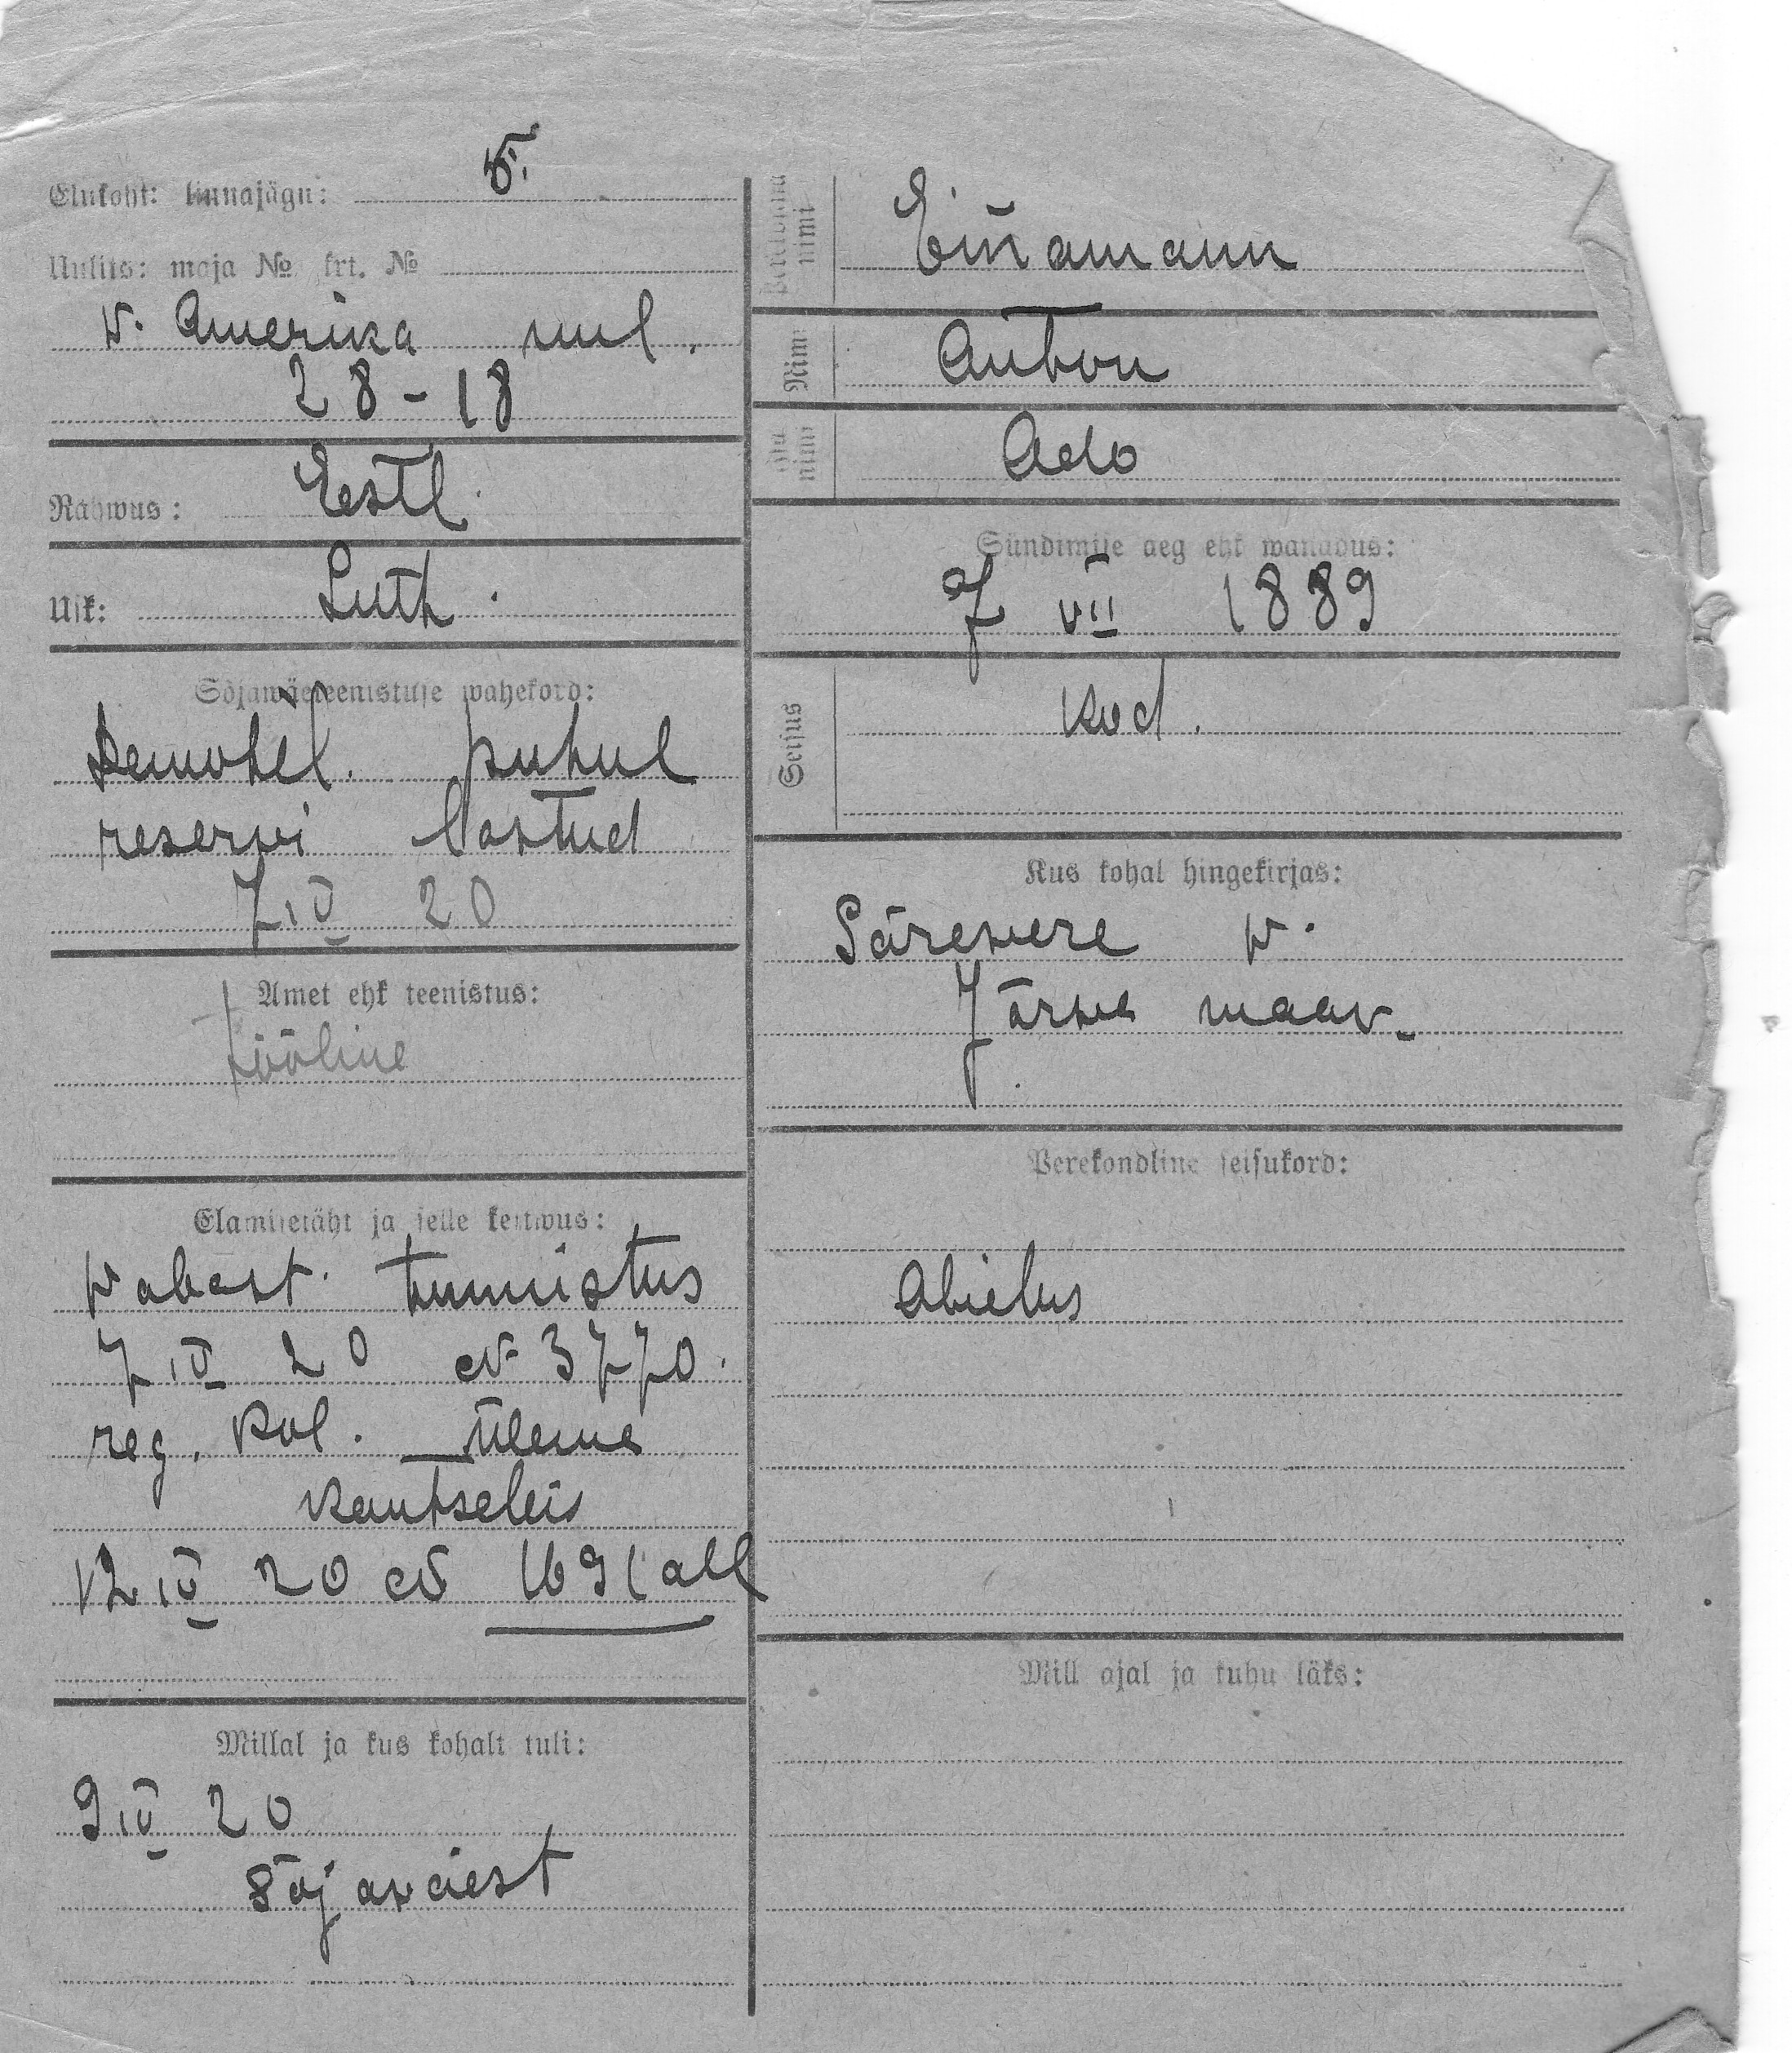 Elukoht: linnajägu: V.
Uulits: maja № krt. №
W. Amerika uul.
28-18
Rahwus: Eestl.
Usk: Luth.
Sõjawäeteenistuse wahekord:
Demobil. puhul
reserwi lastud
7 IV 20
Amet ehk teenistus:
Tööline
Elamisetäht ja selle kestwus:
Wabast. tunnistus
7 IV 20 № 3770.
reg. Pol. Ülema
kantseleis
12 IV 20 № 1691 all
Millal ja kus kohalt tuli:
9 IV 20
Sõjawäest
Perekonna nimi
Einamann
Nimi
Anton
Isa nimi
Ado
Sündimise aeg ehk wanadus:
7 VII 1889
Seisus
kod.
Kus kohal hingekirjas:
Särewere w.
Järwa maak.
Perekondline seisukord:
Abielus
Mill ajal ja kuhu läks: